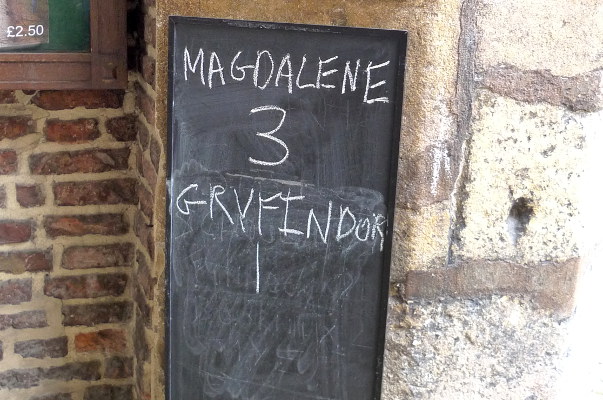 £2.50
MAGDALENE
3
GRYFINDOR
1